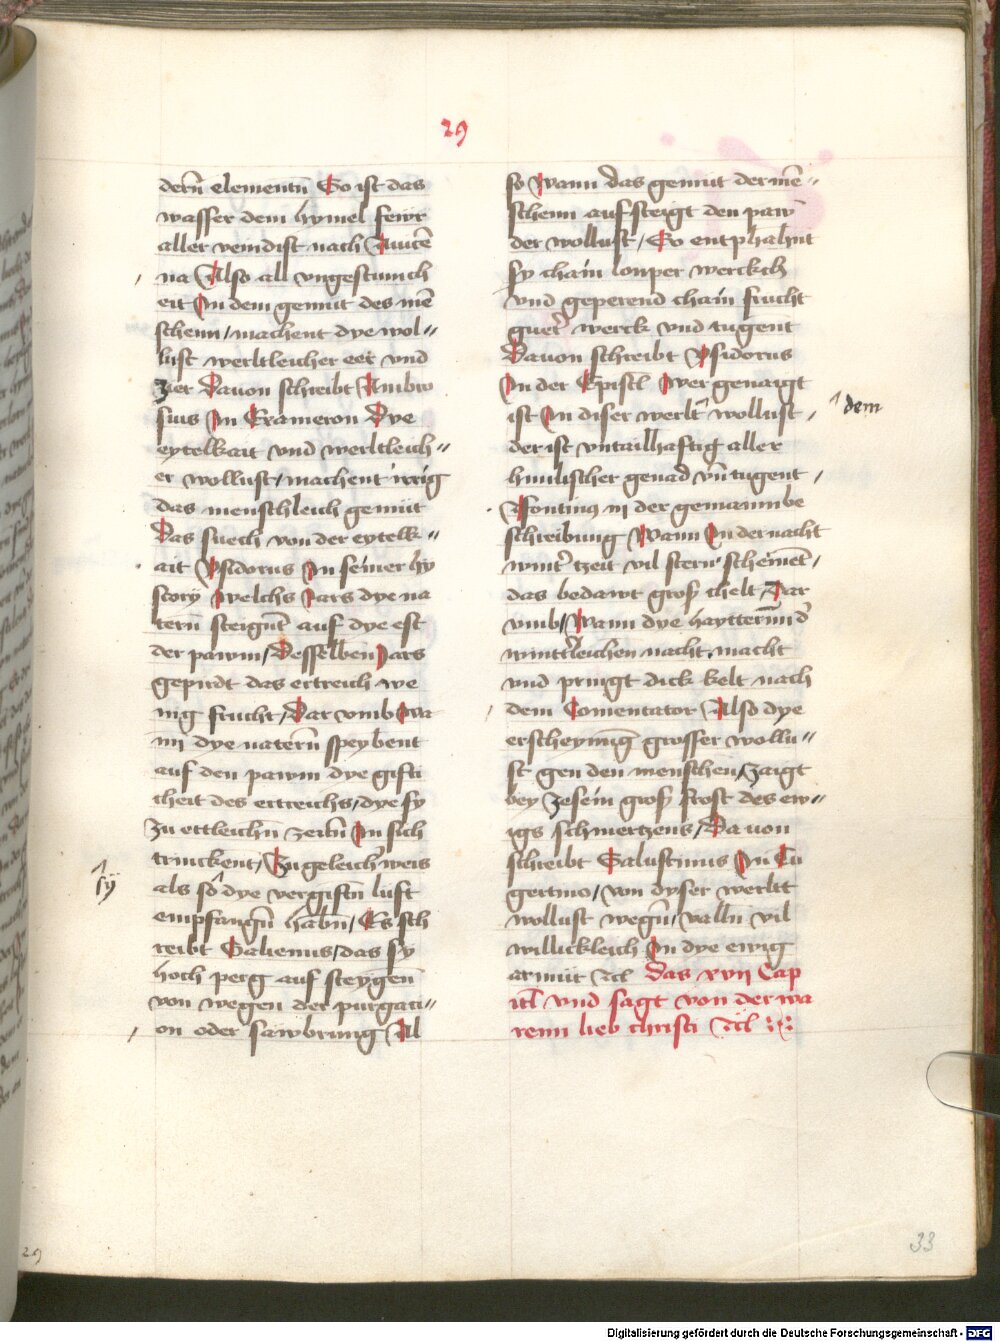 29
dern̄ elementn̄ So ist das
wasser dem hymel fewr
aller veindist nach Auicē
na Also all vngestumich
eit In dem gemüt des mē
schenn / machent dye wol〃
lust werltleicher eer vnd
zier Dauon schreibt Ambro
sius In Exameron Dye
eytelkait vnd werltleich〃
er wollust / machent
das menschleich gemüt
Das suech von der eytelk〃
ait Ysidorus In seiner hy
story welchs Jars dye na
tern̄ steignt auf dye est
der pawm / Desselben Jars
gepirdt das ertreich we
nig frucht / Dar vmb wa
nn dye natern̄ speybent
auf den pawm dye gifti
cheit des ertreichs / dye sy
zu ettleichn̄ zeitn̄ In sich
trinckent / Zu geleicher weis
sy
als so dye vergiftn̄ luft
empfangn̄ habn̄ / Es sch
reibt Galienus / das sy
hoch perg auf steygen̄
von wegen der purgaci〃
on oder sawbrung Al
so wann das gemüt der mē〃
schenn auf steigt den pawm
der wollust / So entphahnt
sy chain lonper werckch
vnd geperend chain frucht
gueter werck vnd tugent
Dauon schreibt Ysidorus
In der Epistl wer genaigt
ist In diser werlt wollust /
dem
der ist vntailhaftig aller
himlischer genad vn̄ tugent /
Fontinus in der gemainn be
schreibung Wann In der nacht
winter tzeit vil stern scheinet /
das bedawt gross chelt / Dar
vmb / Wann dye
winterleichen nacht macht
vnd pringt dick kelt nach
dem Comentator Also dye
erscheynung grosser wollu〃
st gen den menschen / Zaigt
bey Jesein gross frost des ew〃
igs schmertzens / Dauon
schreibt Salustinus In Iu
gertino / von dyser werltt
wollust wegn̄ / valln̄ vil
willickleich In dye ewig
armüt etc Das xvij Cap
itl vnd sagt von der wa
renn lieb christi etc
33
29
Digitalisierung gefördert durch die Deutsche Forschungsgemeinschaft - DFG